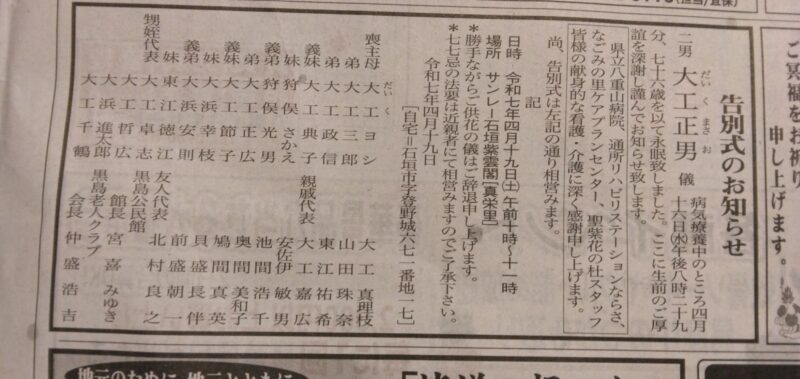 告別式のお知らせ
二男 大工正男 儀 病気療養中のところ四月
だいく まさお
十六日㈬午後八時二十九
分、七十六歳を以て永眠致しました。ここに生前のご厚
誼を深謝し謹んでお知らせ致します。
県立八重山病院、通所リハビリステーションならさ、
なごみの里ケアプランセンター、聖紫花の杜スタッフ
皆様の献身的な看護・介護に深く感謝申し上げます。
尚、告別式は左記の通り相営みます。
記
日時 令和七年四月十九日㈯午前十時〜十一時
場所 サンレー石垣紫雲閣[真栄里]
*勝手ながらご供花の儀はご辞退申し上げます。
*七七忌の法要は近親者にて相営みますのでご了承下さい。
令和七年四月十九日
[自宅=石垣市字登野城六七一番地一七]
喪主母 大工ヨシ
だいく
弟 大工三郎
弟 大工政信
義妹 大工典子
妹 狩俣さかえ
義弟 狩俣光男
弟 大工正広
義妹 大工節子
妹 大浜幸枝
義弟 大浜安則
妹 東江徳江
甥姪代表 大工卓志
大工哲広
大浜進太郎
大工千鶴
親戚代表 大工真理枝
山田珠奈
東江祐希
大工嘉広
安佐伊敏男
池間浩千
奥間美和子
鳩間真英
貝盛長伴
前盛朝一
友人代表 北村良之
黒島公民館
館長 宮喜みゆき
黒島老人クラブ
会長 仲盛浩吉
ご冥福をお祈り
申し上げます。
地元のために地元とともに